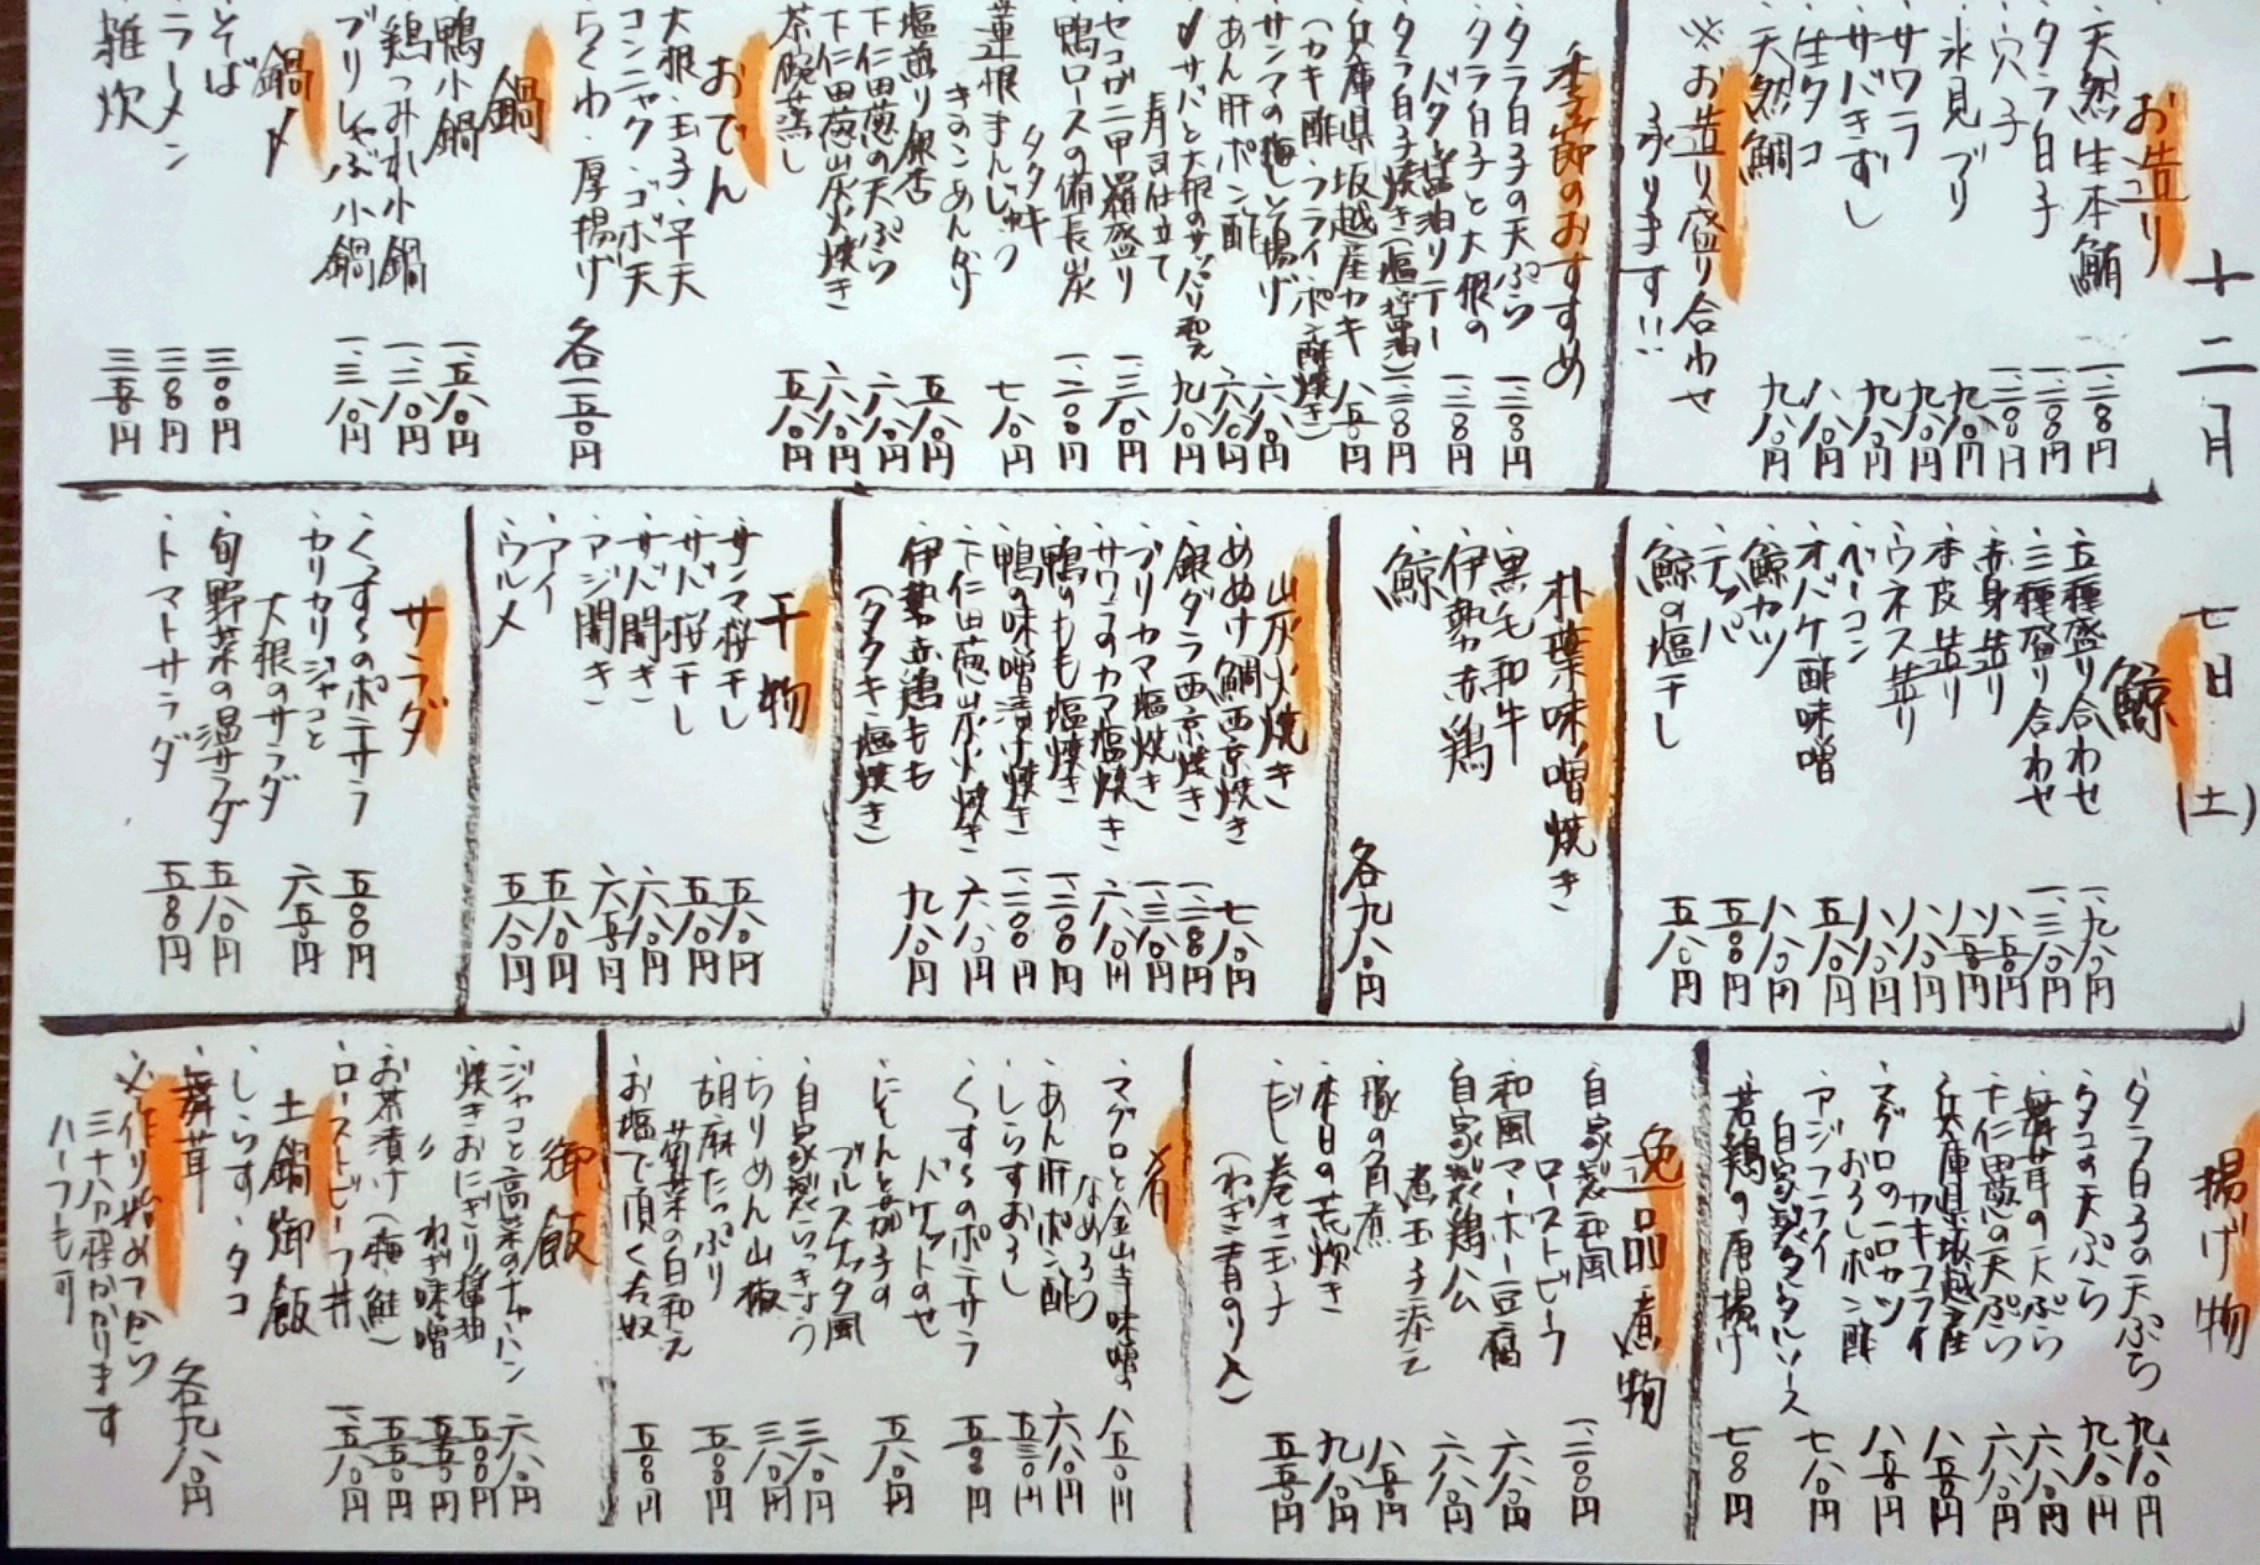 十二月 七日 (土)
お造り
・天然生本鮪 一、二八〇円
・タラ白子 一、二八〇円
・穴子 一、二八〇円
・氷見ブリ 九八〇円
・サワラ 九八〇円
・サバきずし 九八〇円
・生タコ 八八〇円
・天然鯛 九八〇円
※お造り盛り合わせ
承ります!!
季節のおすすめ
・タラ白子の天ぷら
・タラ白子と大根の
バター醤油ソテー
・タラ白子焼き(塩・醤油)
・兵庫県坂越産カキ 八五〇円
(カキ酢・フライ・ポン酢焼き)
・サンマの梅しそ揚げ 六八〇円
・あん肝ポン酢 六八〇円
・〆サバと大根のサッパリ和え 九八〇円
・セコガニ甲羅盛り 一、三八〇円
・鴨ロースの備長炭
タタキ 一、二〇〇円
・蓮根まんじゅう
きのこあんかけ 七八〇円
・塩煎り銀杏 五八〇円
・下仁田葱の天ぷら 六八〇円
・下仁田葱炭火焼き 六八〇円
・茶碗蒸し 五八〇円
おでん
・大根・玉子・平天
コンニャク・ゴボ天
ちくわ・厚揚げ 各一五〇円
鍋
・鴨小鍋 一、五八〇円
・鶏つみれ小鍋 一、二八〇円
・ブリしゃぶ小鍋 一、三八〇円
鍋〆
・そば 三〇〇円
・ラーメン 三〇〇円
・雑炊 三五〇円
鯨
・五種盛り合わせ 一、九八〇円
・三種盛り合わせ 一、三八〇円
・赤身造り 八五〇円
・本皮造り 八五〇円
・ウネス造り 八八〇円
・ベーコン 八八〇円
・オバケ酢味噌 五八〇円
・鯨カツ 八八〇円
・テッパ 五五〇円
・鯨の塩干し 五八〇円
朴葉味噌焼き
・黒毛和牛
・伊勢赤鶏
・鯨 各九八〇円
炭火焼き
・めぬけ鯛西京焼き 七八〇円
・銀ダラ西京焼き 一、二八〇円
・ブリカマ塩焼き 一、三八〇円
・サワラのカマ塩焼き 六八〇円
・鴨のもも塩焼き 一、二〇〇円
・鴨の味噌漬け焼き 一、二〇〇円
・下仁田葱炭火焼き 六八〇円
・伊勢赤鶏もも
(タタキ・塩焼き) 九八〇円
干物
・サンマ桜干し 五八〇円
・サバ桜干し 五八〇円
・サバ開き 六八〇円
・アジ開き 六五〇円
・アイ 五八〇円
・ウルメ 五八〇円
サラダ
・くっす〜のポテサラ 五〇〇円
・カリカリジャコと
大根のサラダ 六五〇円
・旬野菜の温サラダ 五八〇円
・トマトサラダ 五五〇円
揚げ物
・タラ白子の天ぷら 九八〇円
・タコの天ぷら 九八〇円
・舞茸の天ぷら 六八〇円
・下仁田葱の天ぷら 六八〇円
・兵庫県坂越産
カキフライ 八五〇円
・マグロの一口カツ
おろしポン酢 八五〇円
・アジフライ
自家製タルタルソース 七八〇円
・若鶏の唐揚げ 七八〇円
逸品煮物
・自家製和風
ローストビーフ 一、二〇〇円
・和風マーボー豆腐 六八〇円
・自家製鶏ハム
煮玉子添え 六八〇円
・豚の角煮 八五〇円
・本日の荒炊き 九八〇円
・だし巻き玉子
(ねぎ・青のり入) 五五〇円
肴
・マグロと金山寺味噌の
なめろう 八五〇円
・あん肝ポン酢 六八〇円
・しらすおろし 五三〇円
・くっす〜のポテサラ
バケットのせ 五五〇円
・にしんと茄子の
ブルスケッタ風 五八〇円
・自家製らっきょう 三八〇円
・ちりめん山椒 三八〇円
・胡麻たっぷり
菊菜の白和え 五五〇円
・お塩で頂く冷奴 五〇〇円
御飯
・ジャコと高菜のチャーハン 六八〇円
・焼きおにぎり醤油 五〇〇円
〃 ねぎ味噌 五五〇円
・お茶漬け(梅・鮭) 五五〇円
・ローストビーフ丼 一、五八〇円
土鍋御飯
・しらす・タコ
・舞茸 各九八〇円
※作り始めてから
三十八分程かかります
ハーフも可